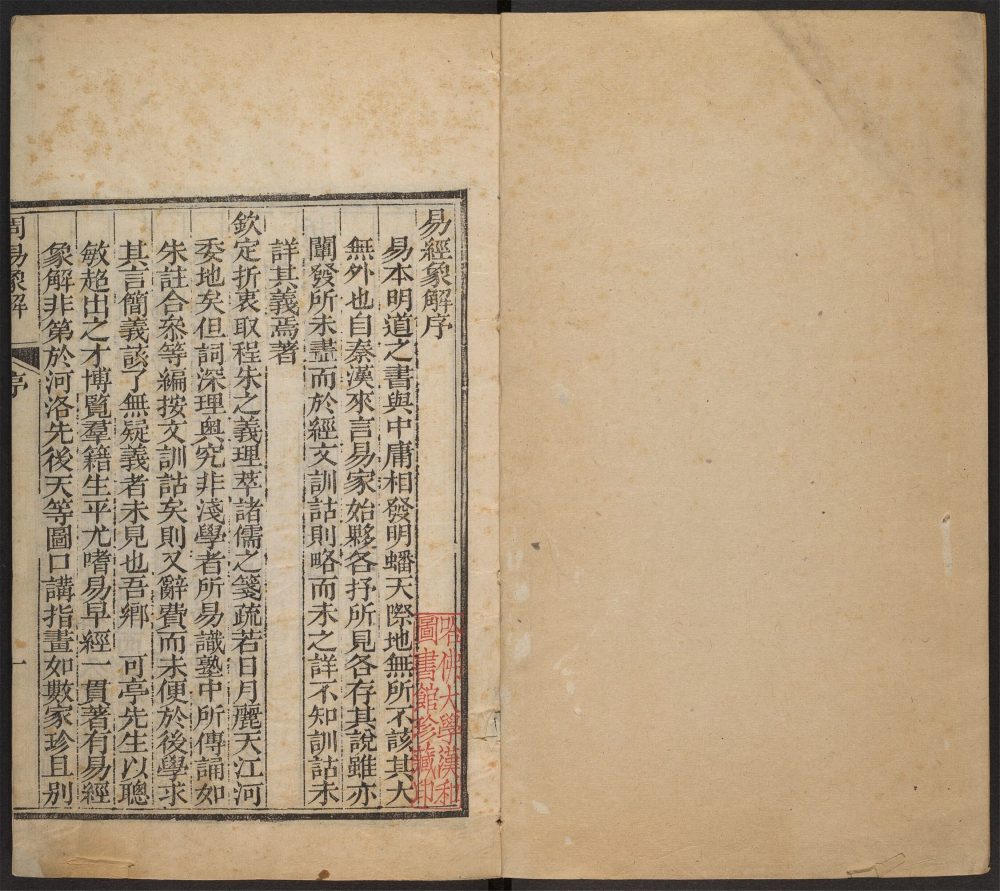 易經象解序
易本明道之書與中庸相發明蟠天際地無所不該其大
無外也自秦漢來言易家始夥各抒所見各存其說雖亦
闡發所未盡而於經文訓詁則略而未之詳不知訓詁未
詳其義焉著
欽定折衷取程朱之義理萃諸儒之箋疏若日月麗天江河
委地矣但詞深理奧究非淺學者所易識塾中所傳誦如
朱註合叅等編按文訓詁矣則又辭費而未便於後學求
其言簡義該了無疑義者未見也吾鄉 可亭先生以聰
敏超出之才博覽羣籍生平尤嗜易早經一貫著有易經
象解非第於河洛先後天等圖口講指畫如數家珍且別
周易象解 序 一
哈佛大學漢和
圖書館珍藏印